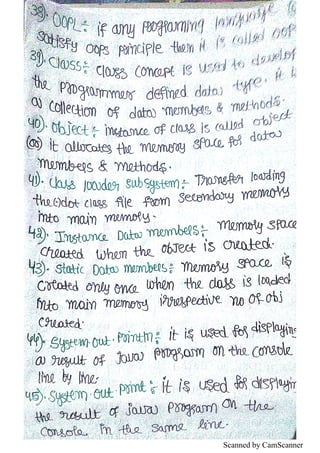 38). OOPL:- if any programming language is
satisfy oops principle then it is called oops
39). Class:- class concept is used to develop
the programmer defined data type. it is
a collection of data members & methods.
40). Object:- instance of class is called object
(or) it allocates the memory space for data
members & methods.
41). Class loader subsystem:- Transfer loading
the dot class file from secondary memory
into main memory.
42). Instance Data members:- Memory space
created when the object is created.
43). Static Data members:- Memory space is
created only once when the class is loaded
into main memory irrespective no of obj
created.
44). System.out.println:- it is used for displaying
a result of Java program on the console
line by line.
45). System.out.print:- it is used for displaying
the result of Java program on the
console in the same line.
Scanned by CamScanner